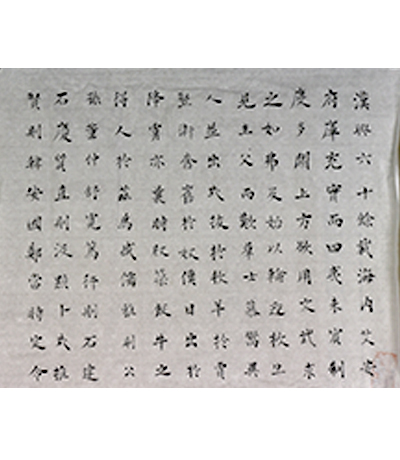 漢興六十餘載海內艾安
府庫充實而四夷未賓制
度多闕上方欲用文武求
之如弗及始以輪迎枚生
見主父而歎羣士慕嚮異
人並出式拔於牧羊於賈
豎衛青奮於奴僕日出於
降虜亦曩時版築飯牛之
得人於茲為盛儒雅則公
孫董仲舒寬篤行則石建
石慶質直則汲黯卜式推
賢則韓安國鄭當時定令